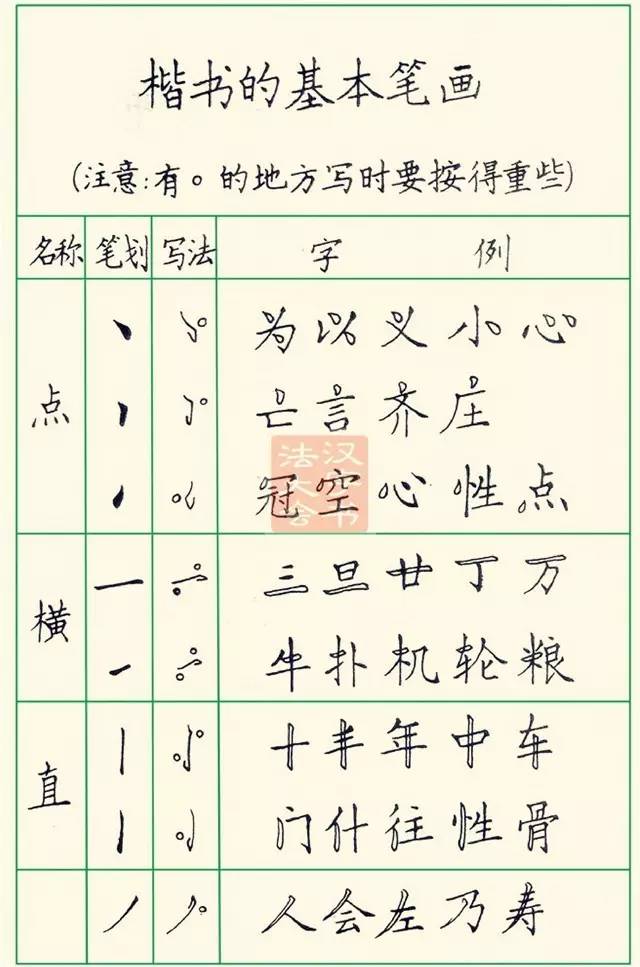 楷书的基本笔画
(注意:有。的地方写时要按得重些)
名称 笔划 写法 字 例
点
为以义小心
亡言齐庄
冠空心性点
横
三旦廿丁万
牛扑机轮粮
直
十半年中车
门什往性骨
人会左乃寿
汉字书法大会